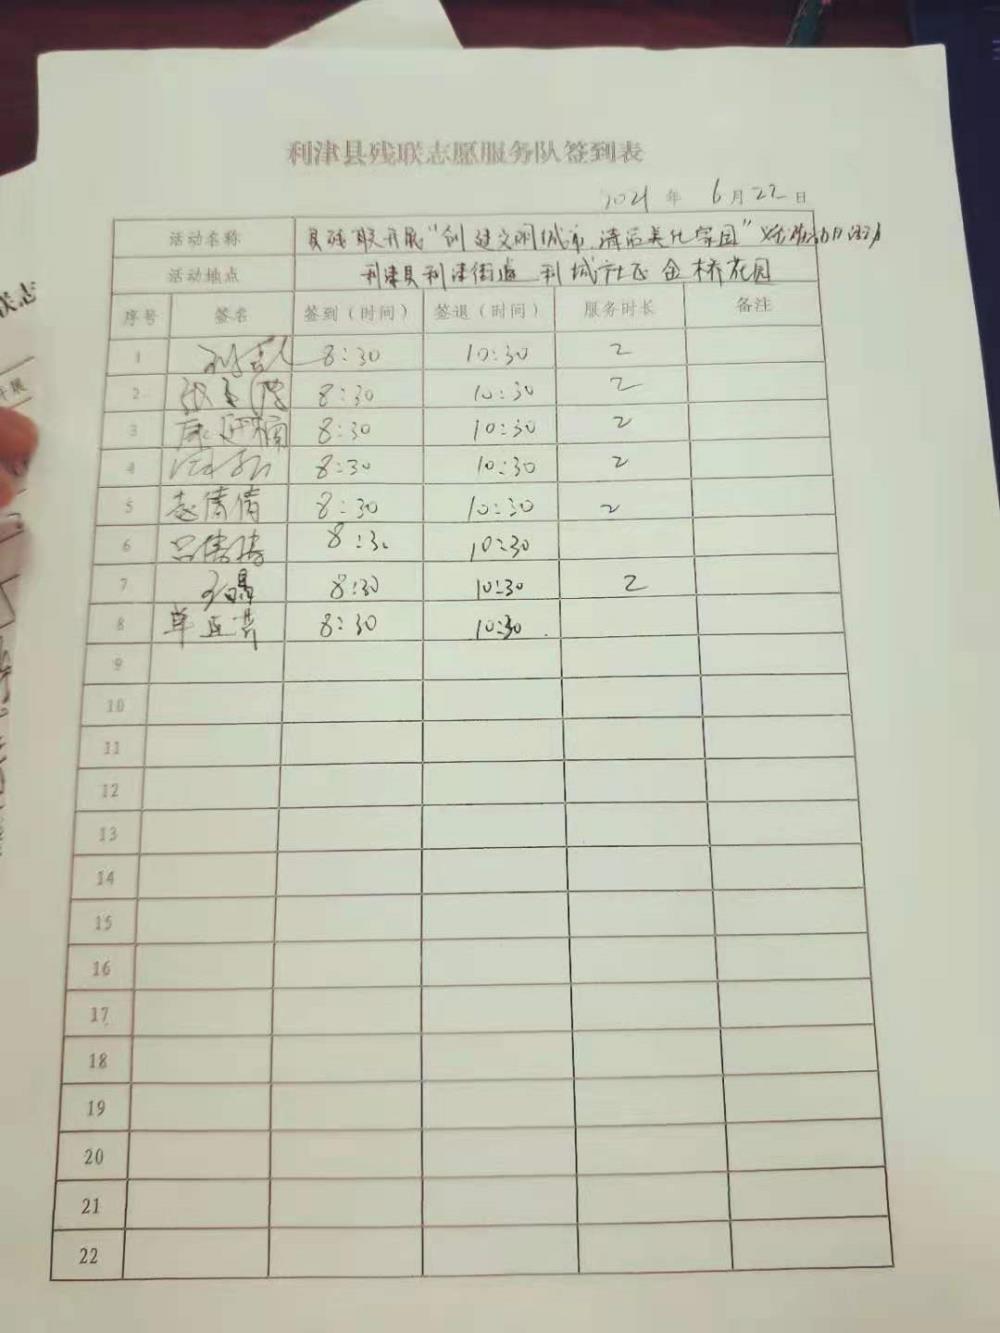 利津县残联志愿服务队签到表
2021 年 6月22日
活动名称 县残联开展"创建文明城市,清洁美化家园"
活动地点 利津县利津街道 利城社区 金桥花园
序号 签名 签到(时间) 签退(时间) 服务时长 备注
1 8:30 10:30 2
2 8:30 10:30 2
3 康 楠 8:30 10:30 2
4 8:30 10:30 2
5 赵倩倩 8:30 10:30 2
6 吕倩倩 8:30 10:30
7 8:30 10:30 2
8 单 8:30 10:30
9
10
11
12
13
14
15
16
17
18
19
20
21
22
联志
开展